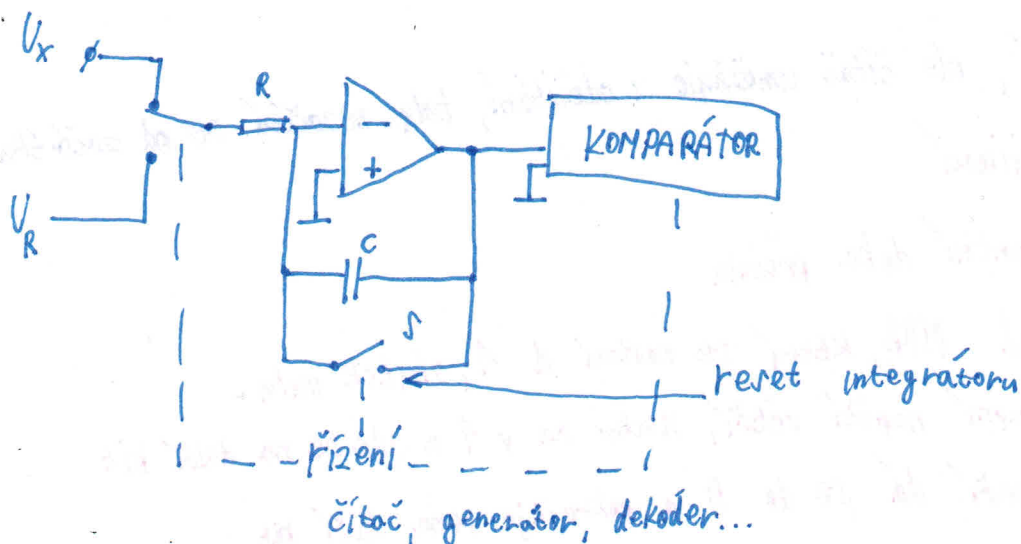 Ux
R
KOMPARÁTOR
UR
C
S
reset integrátoru
řízení
čítač, generátor, dekodér...